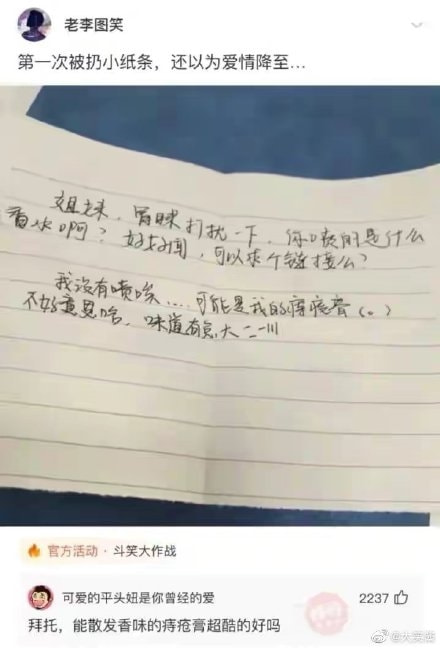 老李图笑
第一次被扔小纸条，还以为爱情降至...
姐妹，冒昧打扰一下，你喷的是什么
香水啊？好好闻，可以求个链接么？
我没有喷唉....可能是我的痔疮膏(。)
不好意思哈，味道有点大二川
官方活动 · 斗笑大作战
可爱的平头妞是你曾经的爱
2237
拜托，能散发香味的痔疮膏超酷的好吗